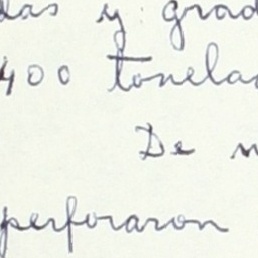 das y grad
400 tonelad
De m
perforaron